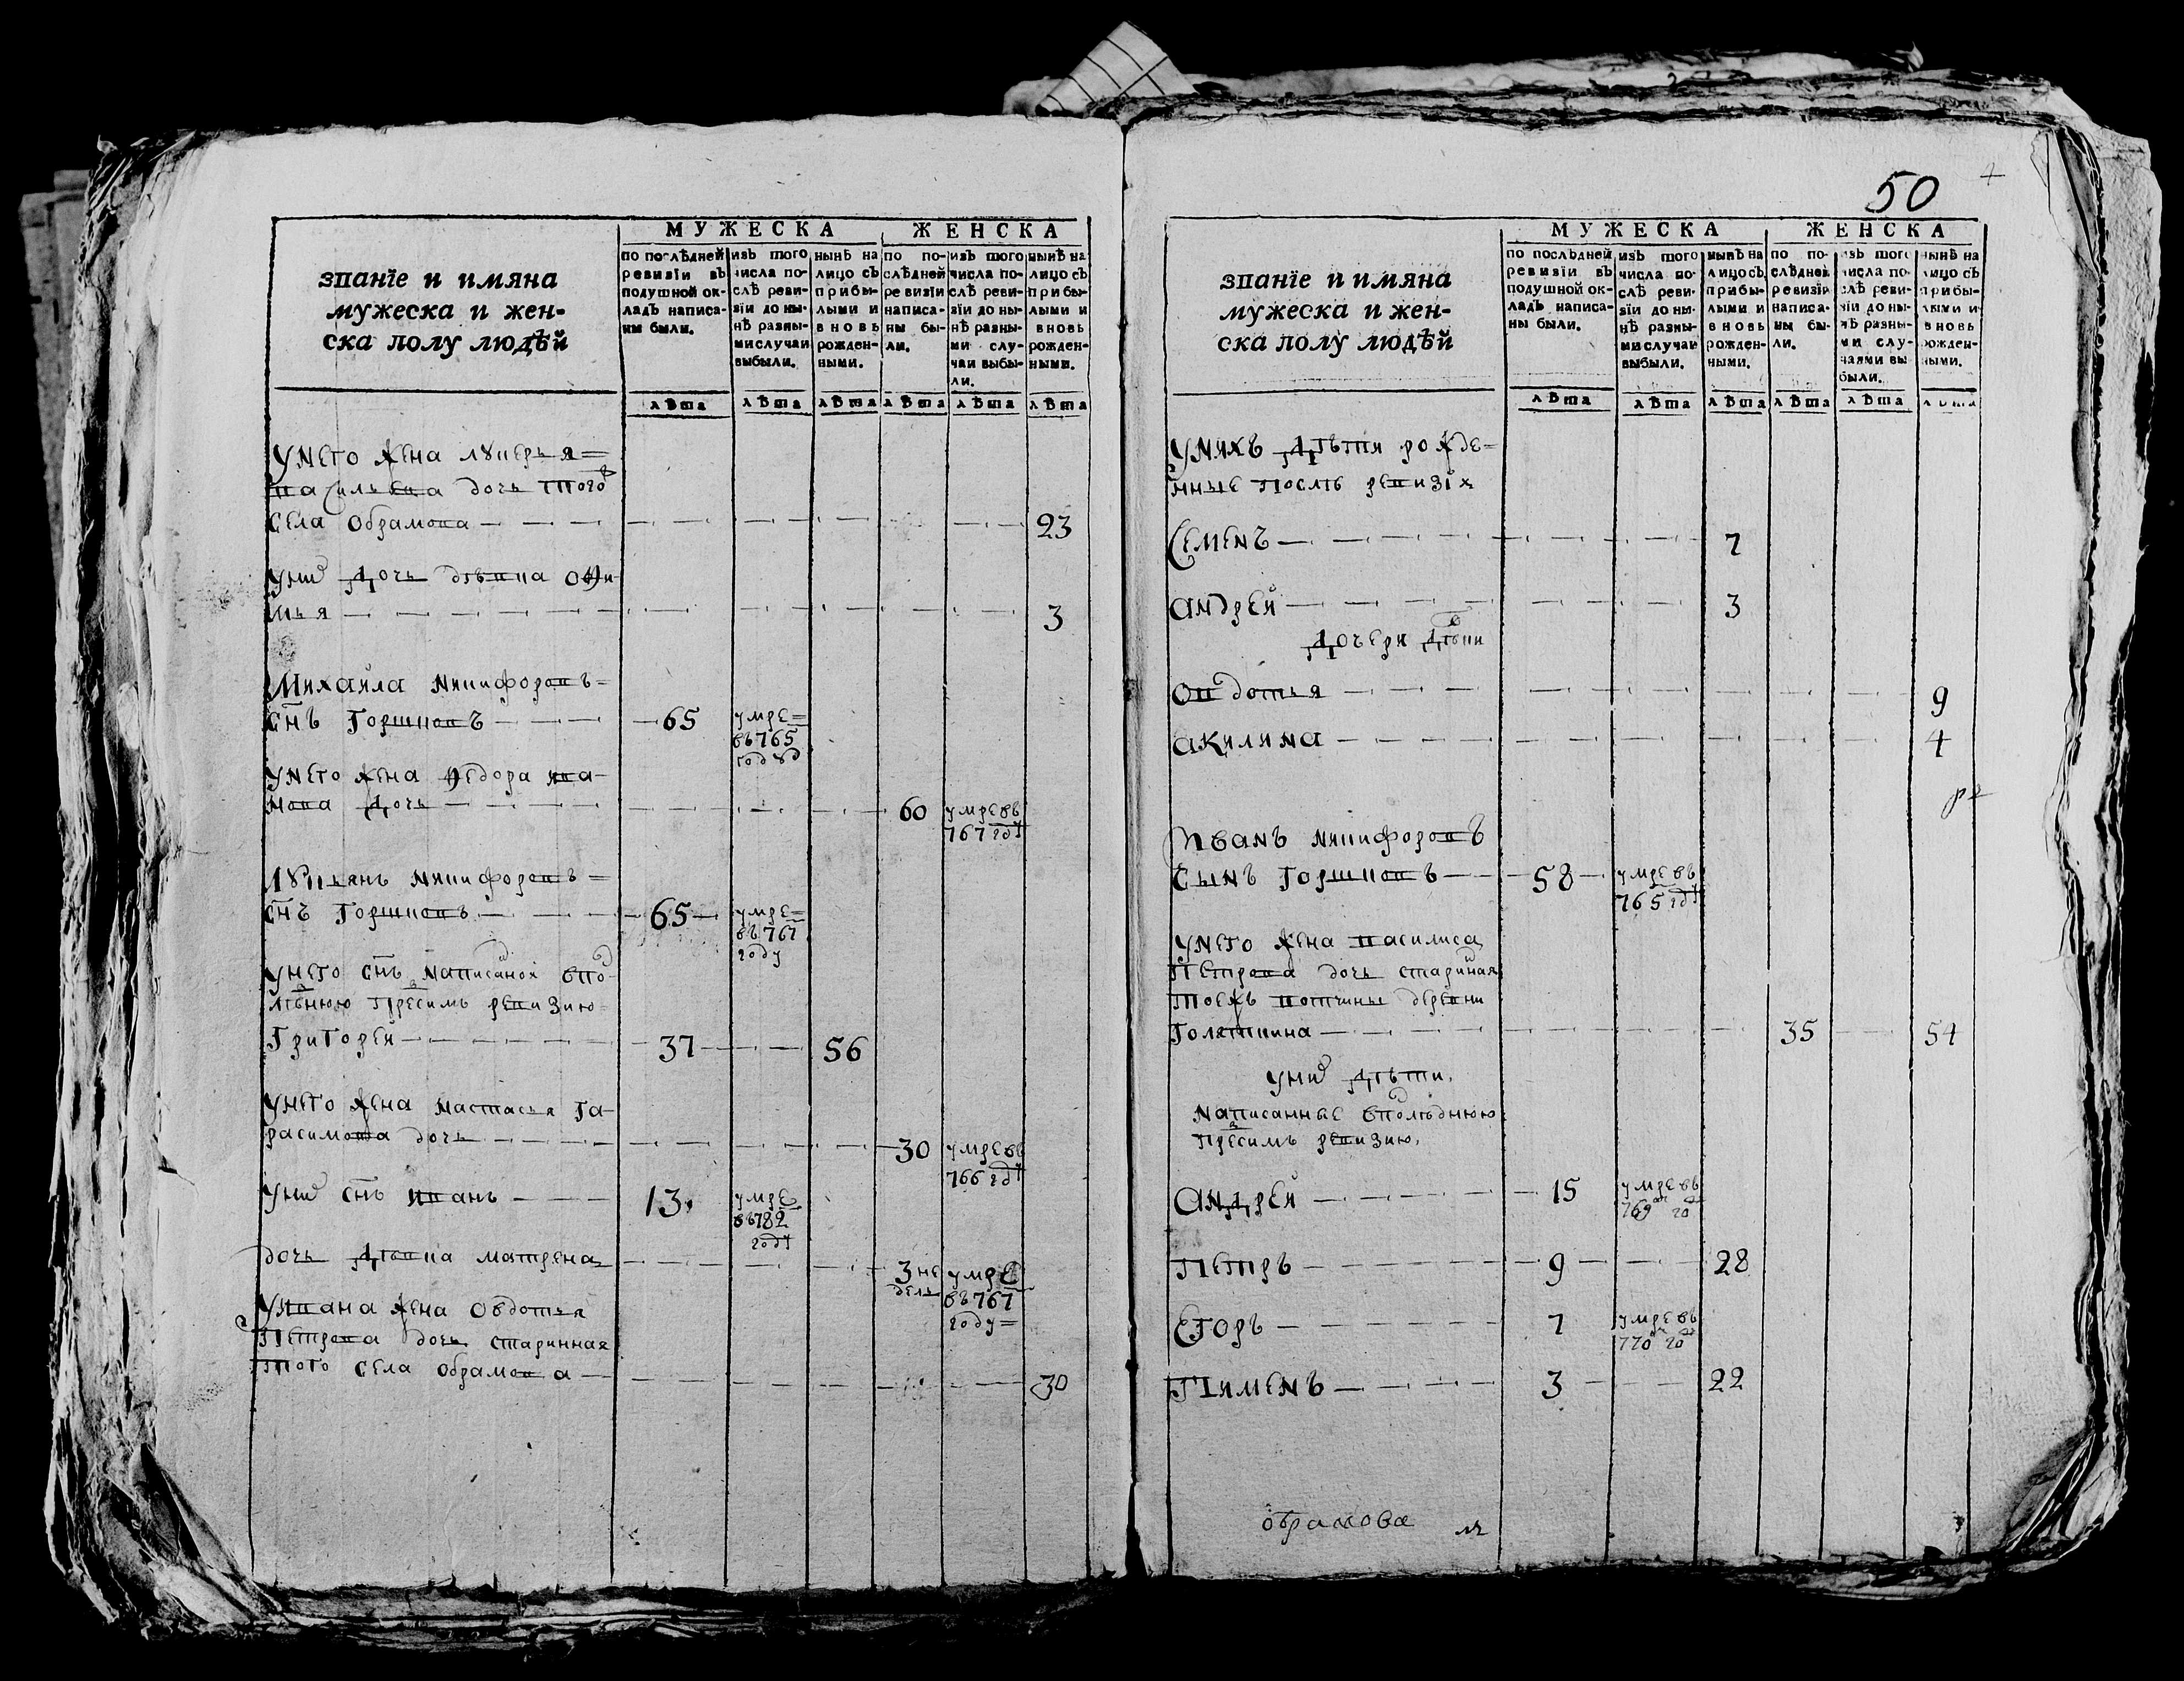 МУЖЕСКА
ЖЕНСКА
званїе и имяна
мужеска и жен-
ска полу людѣй
по послѣдней
ревизїи въ
подушной ок-
ладъ написа-
ны были.
изъ того
числа по-
слѣ реви-
зїи до ны-
нѣ разны-
ми случаи
выбыли.
нынѣ на
лицо съ
прибы-
лыми и
вновь
рожден-
ными.
по по-
слѣдней
ревизїи
написа-
ны бы-
ли.
изъ того
числа по-
слѣ реви-
зїи до ны-
нѣ разны-
ми слу-
чаи выбы-
ли.
нынѣ на
лицо съ
прибы-
лыми и
вновь
рожден-
ными.
лѣта лѣта лѣта лѣта лѣта лѣта
унего жена лукерья =
васильева дочь того
села обрамова 23
уних дочь дѣвка офи-
мья 3
Михайла никифоровъ =
снъ Горшковъ 65 умре =
въ 765
году
унего жена Федора ива-
нова дочь 60 умре въ
767 году
Лукьянъ никифоровъ =
снъ Горшковъ 65 умре =
въ 767
году
унего снъ написаной впо-
слѣднюю пресимъ ревизию
Григорей 37 56
унего жена настасья га-
расимова дочь 30 умре въ
766 году
уних снъ иванъ 13 умре
въ 782
году
дочь дѣвка матрена 3 не
дели умре
въ 767
году =
уивана жена овдотья
Петрова дочь старинная
того села обрамова 30
50
МУЖЕСКА
ЖЕНСКА
званїе и имяна
мужеска и жен-
ска полу людѣй
по послѣдней
ревизїи въ
подушной ок-
ладъ написа-
ны были.
изъ того
числа по-
слѣ реви-
зїи до ны-
нѣ разны-
ми случаи
выбыли.
нынѣ на
лицо съ
прибы-
лыми и
вновь
рожден-
ными.
по по-
слѣдней
ревизїи
написа-
ны бы-
ли.
изъ того
числа по-
слѣ реви-
зїи до ны-
нѣ разны-
ми слу-
чаями вы
были.
нынѣ на
лицо съ
прибы-
лыми и
вновь
рожден-
ными.
лѣта лѣта лѣта лѣта лѣта лѣта
унихъ дѣти рожде-
нные послѣ ревизїи
Семенъ 7
андрей 3
дочери дѣвки
овдотья 9
акилина 4
Иванъ никифоровъ
сынъ Горшковъ 58 умре въ
765 году
унего жена василиса
Петрова дочь стариная
тоежъ вотчины деревни
Голяткина 35 54
уних дѣти
написанные вполѣднюю
пресимъ ревизию.
Андрей 15 умре въ
769 го
Петръ 9 28
Егоръ 7 умре въ
770 го
Пименъ 3 22
обрамова